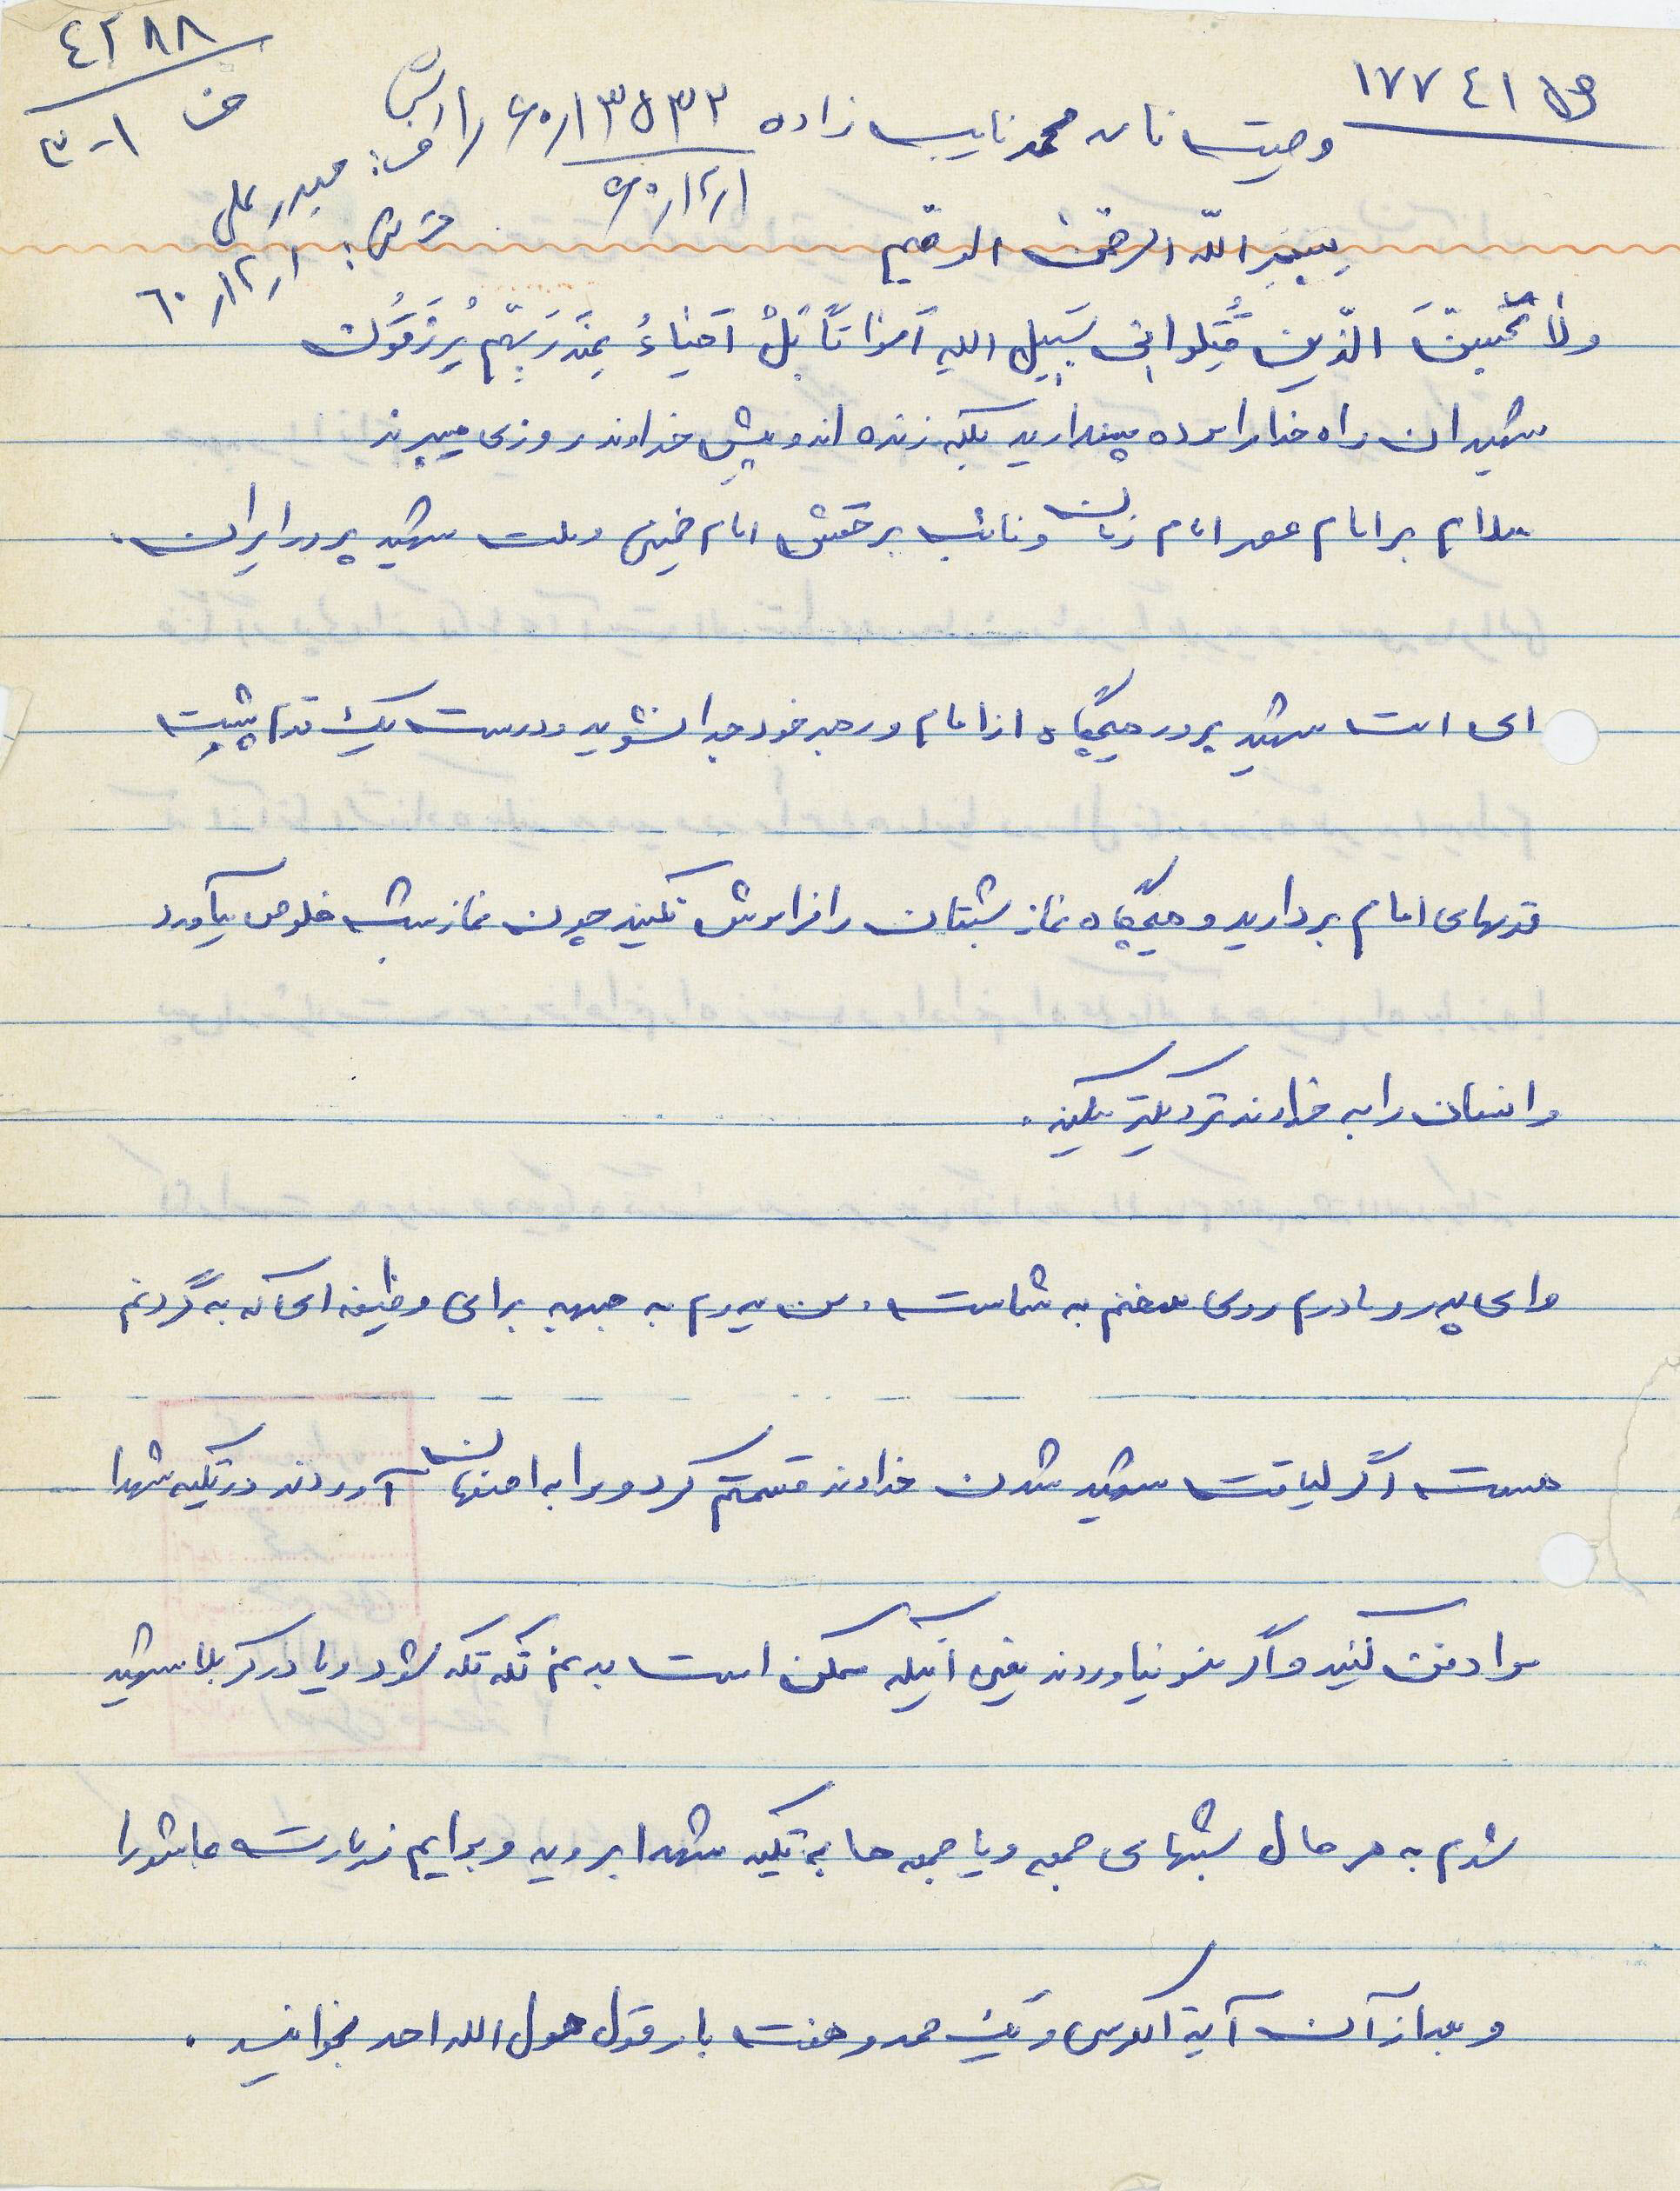 ۱۷۷۴۱
۴۲۸۸
ف ۱-۳
وصیت نامه محمد نایب زاده
۶۰/۱۲/۱
ش: ۶۰/۱۲/۱
بسم الله الرحمن الرحیم
ولا تحسبنَّ الّذین قُتِلوا فی سَبیلِ اللهِ اَمواتاً بَلْ اَحیاءُ عِندَ رَبِّهِم یُرزَقُون
شهیدان راه خدا را مرده مپندارید بلکه زنده اند و پیش خداوند روزی میبرند
سلام بر امام عصر امام زمان و نائب بر حقش امام خمینی و ملت شهید پرور ایران.
ای امت شهید پرور هیچگاه از امام و رهبر خود جدا نشوید و درست یک قدم پشت
قدمهای امام بردارید و هیچگاه نماز شبتان را فراموش نکنید چون نماز شب خلوص میآورد
و انسان را به خداوند نزدیکتر میکند.
و ای پدر و مادرم روی سخنم به شماست. من میروم به جبهه برای وظیفه ای که به گردنم
هست اگر لیاقت شهید شدن خداوند قسمتم کرد و مرا به اصفهان آوردند در تکیه شهدا
مرا دفن کنید و اگر منو نیاوردند یعنی اینکه ممکن است بدنم تکه تکه شود و یا در کربلا شهید
شدم به هر حال شبهای جمعه و یا جمعه ها به تکیه شهدا بروید و برایم زیارت عاشورا
و بعد از آن آیة الکرسی و یک حمد و هفت بار قول هول الله احد بخوانید.